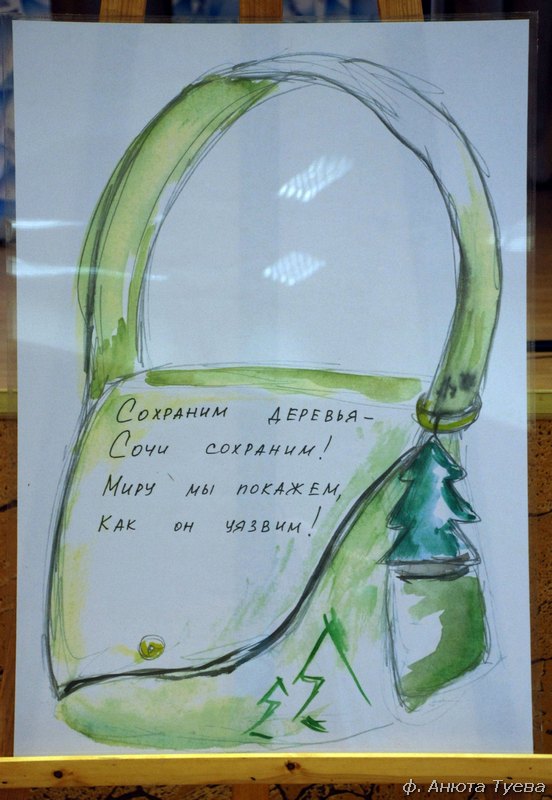 Сохраним деревья –
Сочи сохраним!
Миру мы покажем,
Как он уязвим!
ф. Анюта Туева